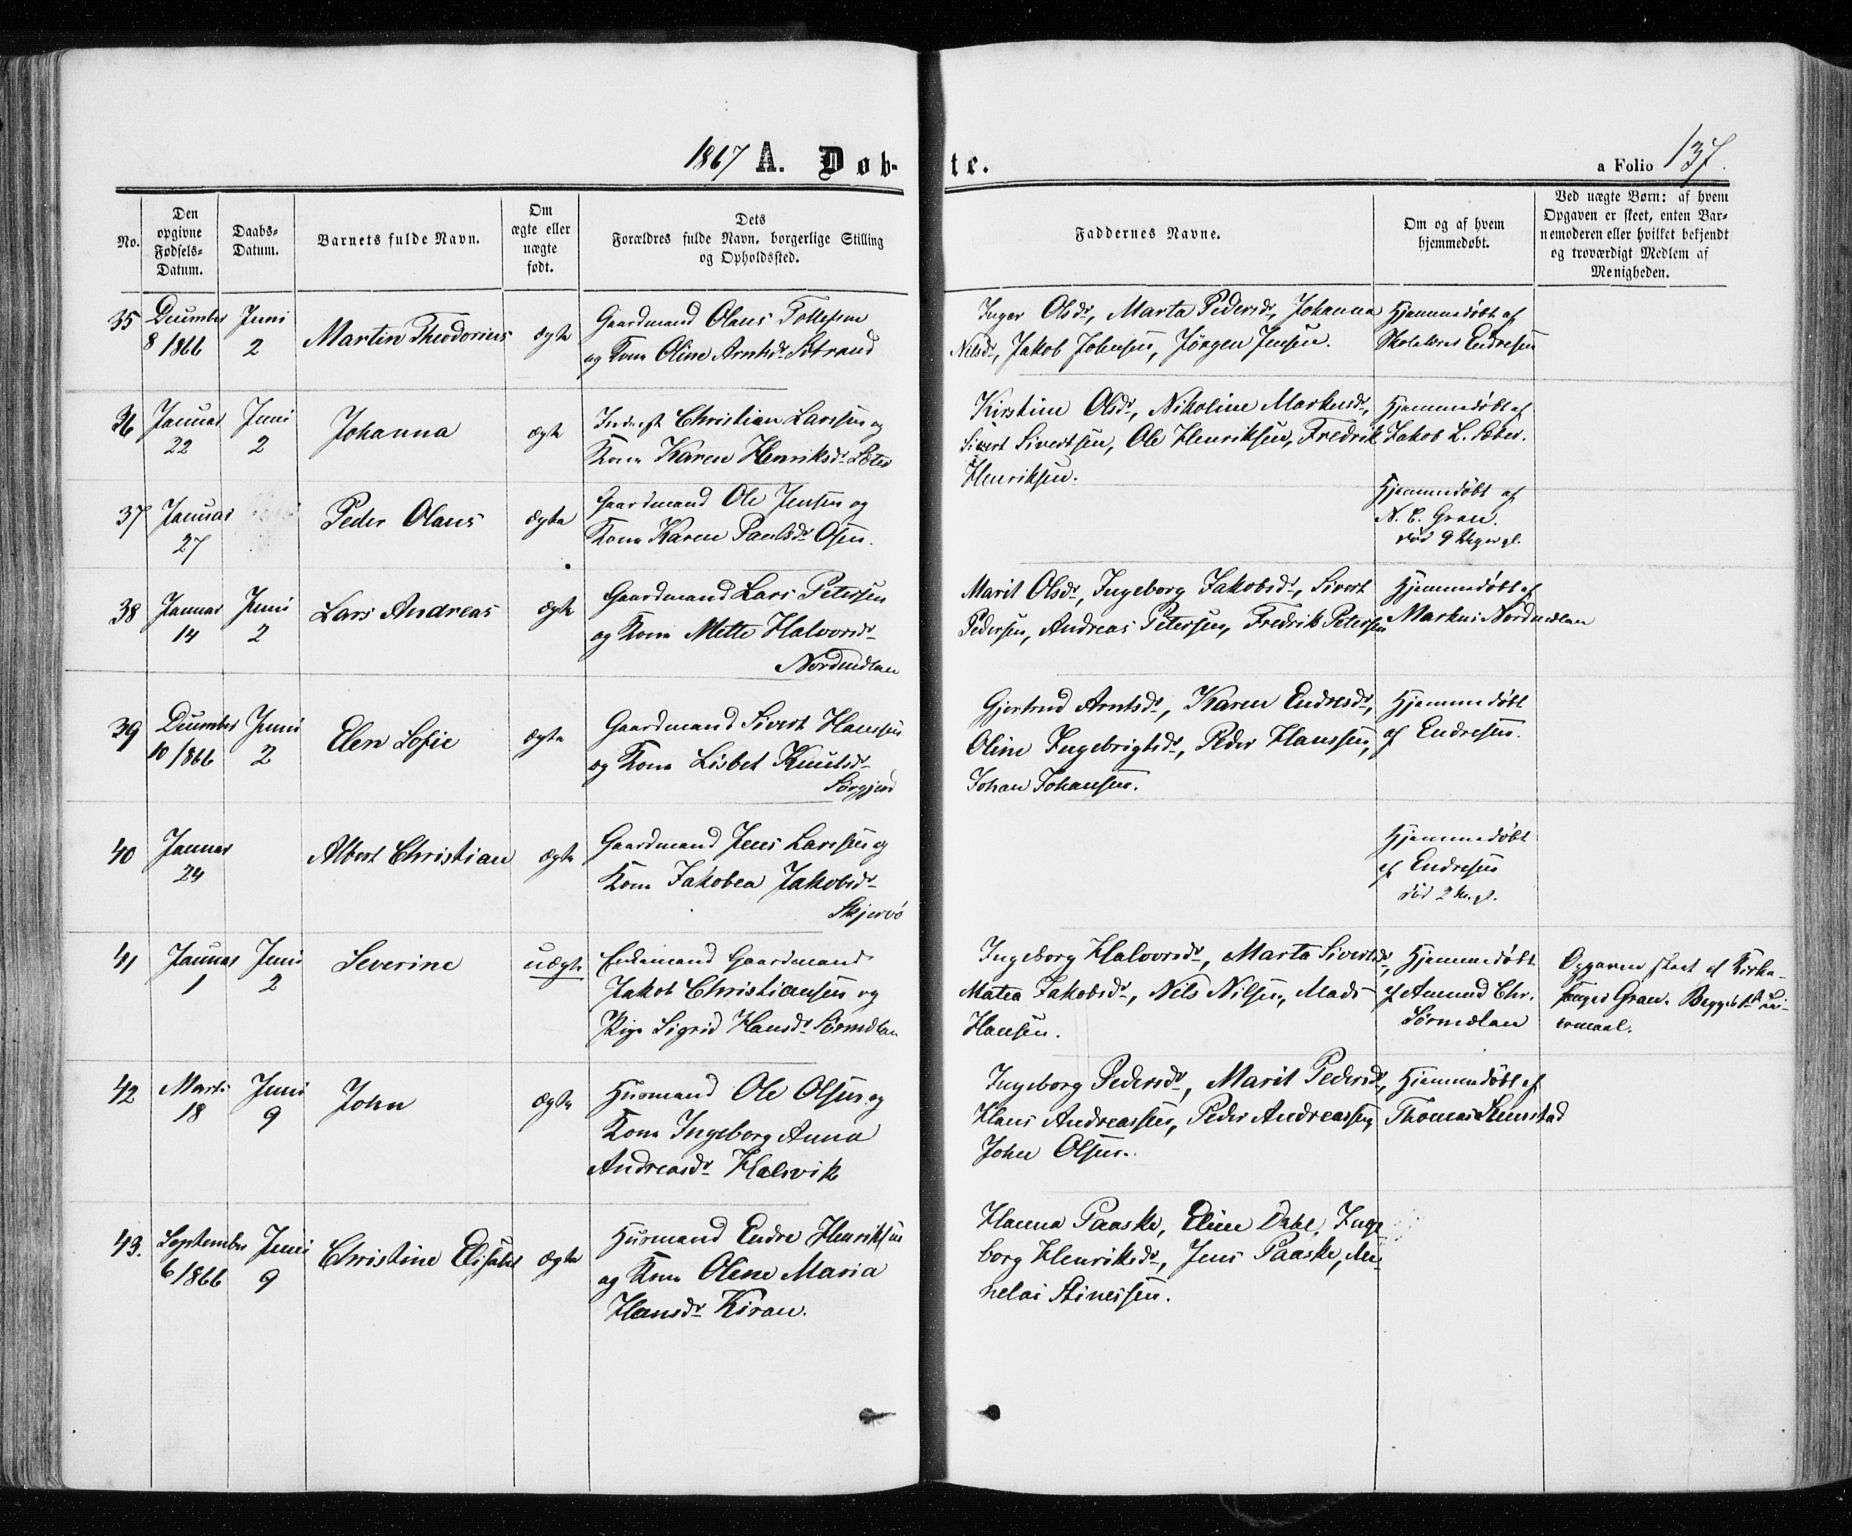 1867 A. Døb-te.
a Folio 137.
No.
Den opgivne Fødsels-Datum.
Daabs-Datum.
Barnets fulde Navn.
Om ægte eller uægte født.
Dets Forældres fulde Navn, borgerlige Stilling og Opholdssted.
Faddernes Navne.
Om og af hvem hjemmedøbt.
Ved uægte Børn: af hvem Opgaven er skeet, enten Barnemoderen eller hvilket bekjendt og troværdigt Medlem af Menigheden.
35 December 8 1866 Juni 2 Martin Theodorius ægte
Gaardmand Olaus Tollefsen
og Kone Oline Arntsdr Strand
Inger Olsdr, Marta Pedersdr, Johanna
Nilsdr, Jakob Johnsen, Jørgen Jensen.
Hjemmedøbt af
Endresen
36 Januar 22 Juni 2 Johanna ægte
Inderst Christian Larsen og
Kone Karen Henriksdr Sæter
Kirstine Olsdr, Nikoline Markusdr,
Sivert Sivertsen, Ole Henriksen, Fredrik
Henriksen.
Hjemmedøbt af
Jakob L. Sæter.
37 Januar 27 Peder Olaus ægte
Gaardmand Ole Jensen og
Kone Karen Paulsdr Osen.
Hjemmedøbt af
N. C. Gran.
død 9 Uger gl.
38 Januar 14 Juni 2 Lars Andreas ægte
Gaardmand Lars Petersen
og Kone Mette Halvorsdr
Nordmelan
Marit Olsdr, Ingeborg Jakobsdr, Sivert
Pedersen, Andreas Petersen, Fredrik Petersen
Hjemmedøbt af
Markus Nordmelan
39 December 10 1866 Juni 2 Elen Sofie ægte
Gaardmand Sivert Hansen
og Kone Lisbet Knutsdr
Sørgjerd
Gjertrud Arntsdr, Karen Endresdr,
Oline Ingebrigtsdr, Peder Hanssen,
Johan Johansen.
Hjemmedøbt
af Endresen.
40 Januar 24 Albert Christian ægte
Gaardmand Jens Larsen og
Kone Jakobea Jakobsdr
Skjervø
Hjemmedøbt
af Endresen
død 2 gl.
41 Januar 1 Juni 2 Severine uægte
Enkemand Gaardmand
Jakob Christiansen og
Pige Sigrid Hansdr Sørmelan
Ingeborg Halvorsdr, Marta Sivertsdr,
Matea Jakobsdr, Nils Nilsen, Mads
Hansen.
Hjemmedøbt
af Amund Chr.
Sørmelan
Opgaven skeet af Kirke-
sanger Gran. Begges 1ste Lei-
ermaal.
42 Marts 18 Juni 9 John ægte
Husmand Ole Olsen og
Kone Ingeborg Anna
Andreasdr Halsvik
Ingeborg Pedersdr, Marit Pedersdr,
Hans Andreassen, Peder Andreassen,
John Olsen.
Hjemmedøbt af
Thomas Stenstad
43. September 6 1866 Juni 9 Christine Elisabet ægte
Husmand Endre Henriksen
og Kone Oline Maria
Hansdr Kiran.
Hanna Paaske, Eline Dahl, Inge
borg Henriksdr, Jens Paaske, Me-
nelai Stinessen.